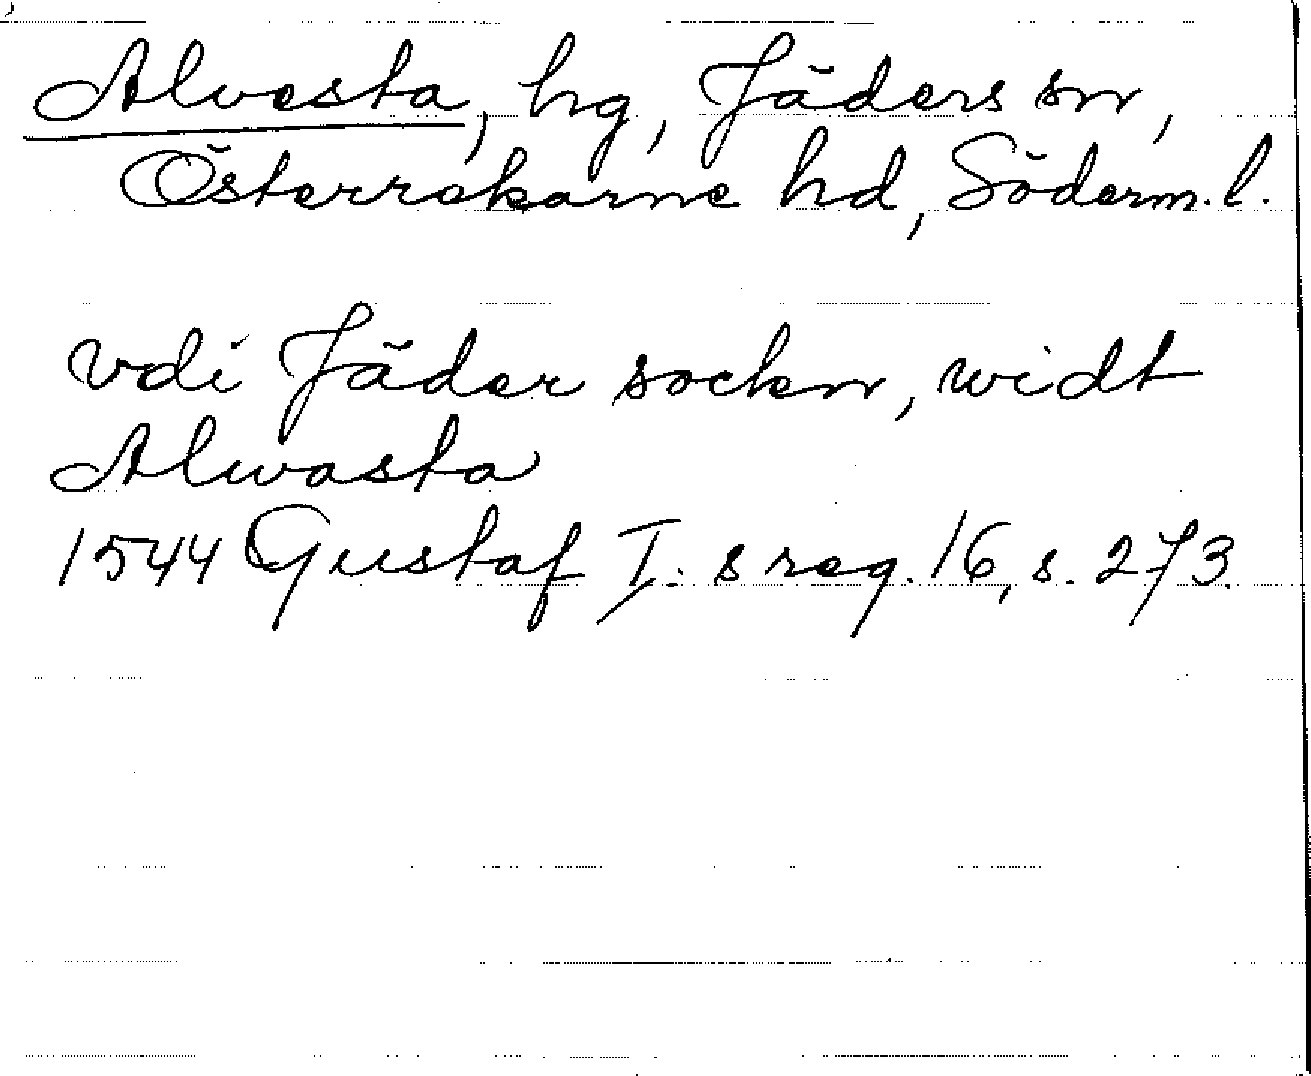 Alvesta, hg, Jäders sn,
Österrekarne hd, Söderm. l.
vdi Jäder sockn, widt
Alwasta
1544 Gustaf I:s reg. 16, s. 273.